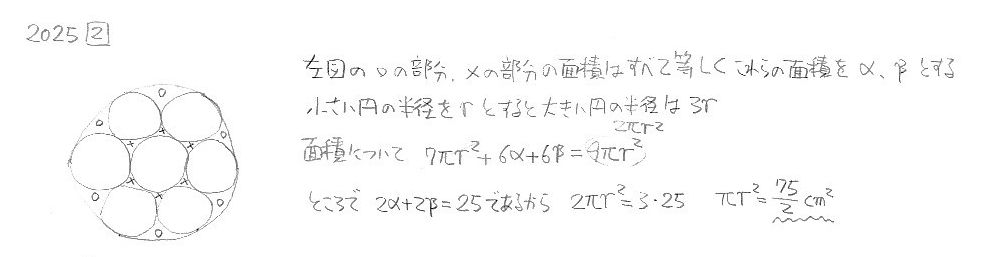 2025 2
左図の○の部分、×の部分の面積はすべて等しくこれらの面積をα、βとする
小さい円の半径をrとすると大きい円の半径は3r
2πr²
面積について 7πr²+6α+6β=9πr²
ところで 2α+2β=25であるから 2πr²=3・25 πr²=75/2 cm²